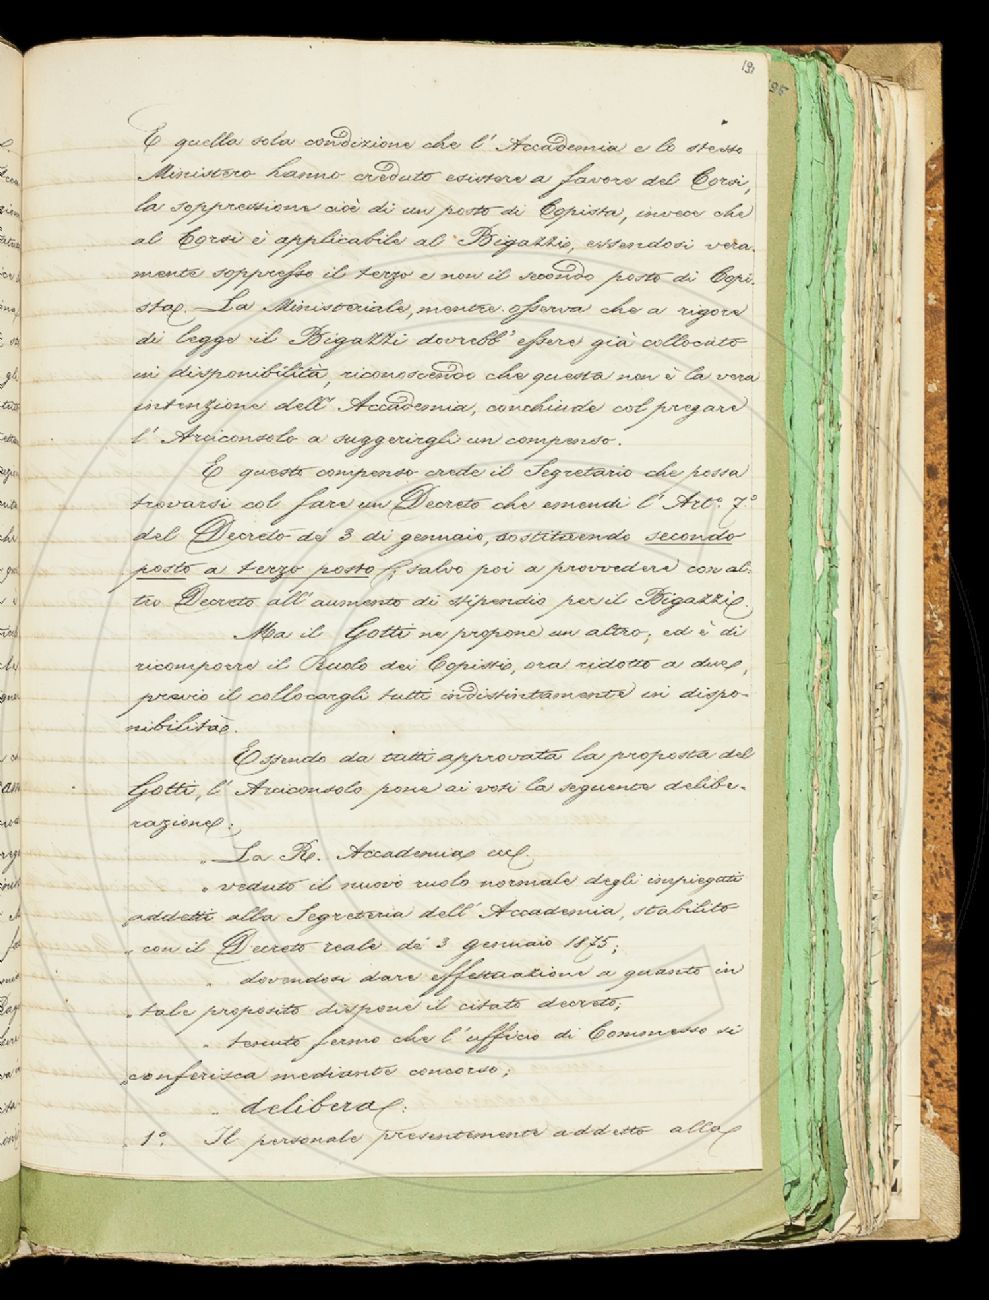 191
E quella sola condizione che l'Accademia e lo stesso
Ministero hanno creduto esistere a favore del Corsi,
la soppressione cioè di un posto di Copista, invece che
al Corsi è applicabile al Bigazzi, essendosi vera-
mente soppresso il terzo e non il secondo posto di Copi-
sta. La Ministeriale, mentre osserva che a rigore
di legge il Bigazzi dovrebb'essere già collocato
in disponibilità, riconoscendo che questa non è la vera
intenzione dell'Accademia, conchiude col pregare
l'Arciconsolo a suggerirgli un compenso.
E questo compenso crede il Segretario che possa
trovarsi col fare un Decreto che emendi l'Art.° 7.°
del Decreto de' 3 di gennaio, sostituendo secondo
posto a terzo posto; salvo poi a provvedere con al-
tro Decreto all'aumento di stipendio per il Bigazzi.
Ma il Gotti ne propone un altro; ed è di
ricomporre il Ruolo dei Copisti, ora ridotto a due,
previo il collocargli tutti indistintamente in dispo-
nibilità.
Essendo da tutti approvata la proposta del
Gotti, l'Arciconsolo pone ai voti la seguente delibe-
razione:
„ La R. Accademia ec.
„ veduto il nuovo ruolo normale degli impiegati
addetti alla Segreteria dell'Accademia, stabilito
„ con il Decreto reale de' 3 gennaio 1875;
„ dovendosi dare effettuazione a quanto in
„ tale proposito dispone il citato decreto;
„ tenuto fermo che l'ufficio di Commesso si
„ conferisca mediante concorso;
„ delibera:
„ 1.° Il personale presentemente addetto alla